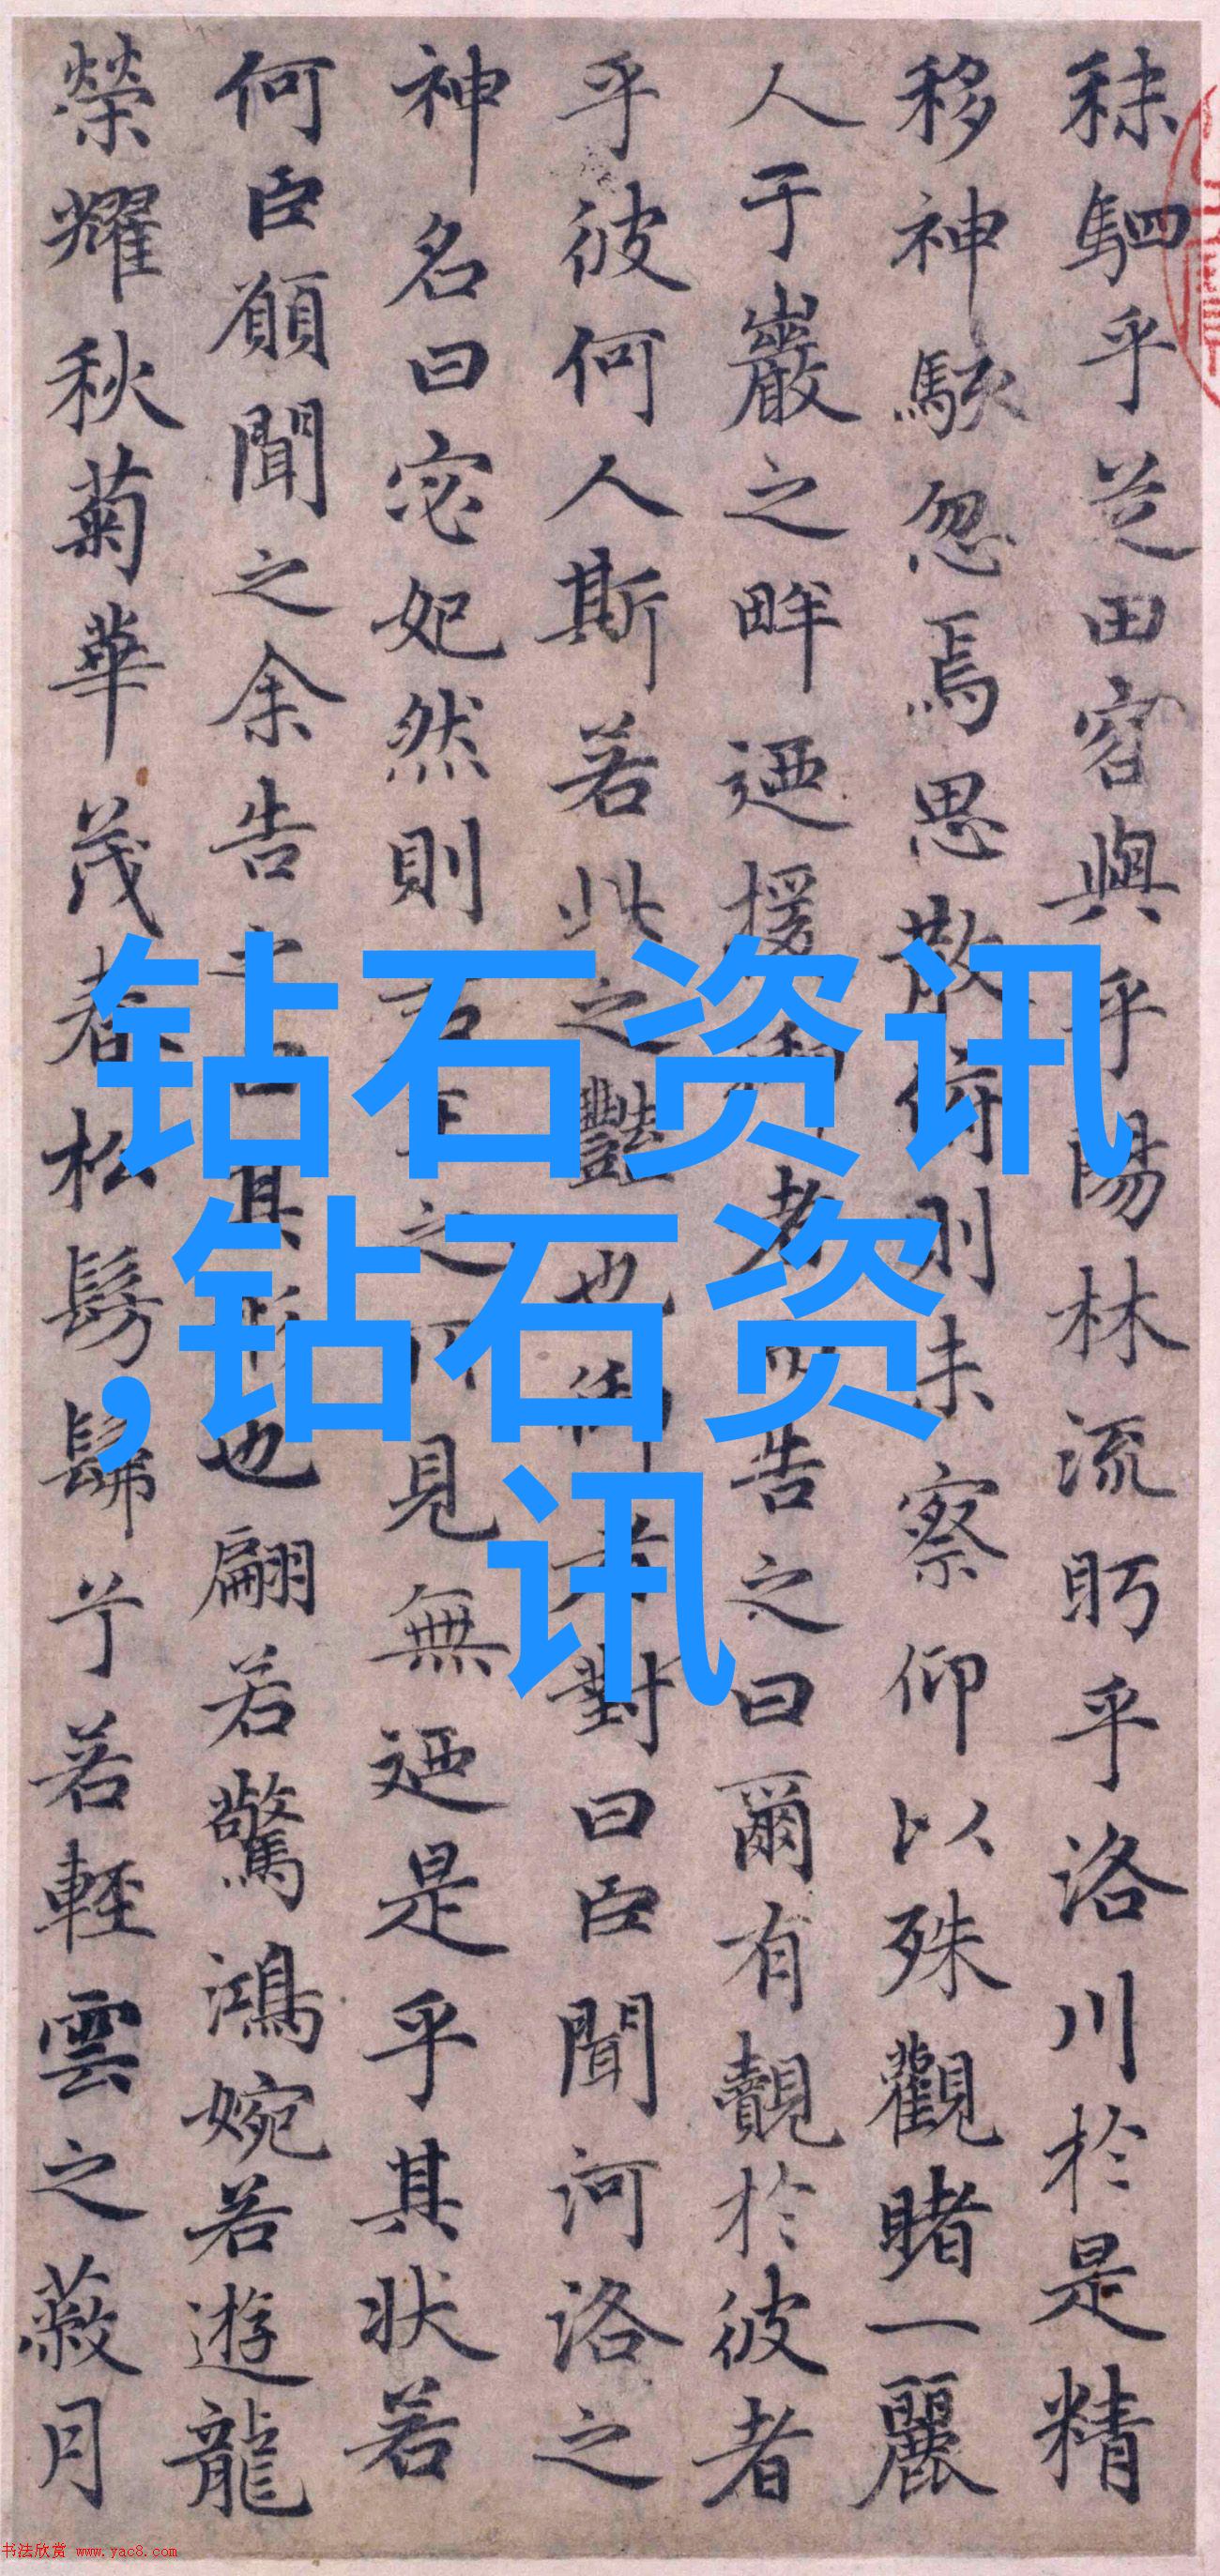 秣駟乎芝田容與乎陽林流眄乎洛川於是精
移神駭忽焉思散俯則未察仰以殊觀睹一麗
人于巖之畔迺援御者而告之曰爾有覿於彼者
乎彼何人斯若此之豔也御者對曰臣聞河洛之
神名曰宓妃然則君王之所見無迺是乎其状若
何臣願聞之余告之曰其形也翩若驚鴻婉若遊龍
榮耀秋菊華茂春松髣髴兮若輕雲之蔽月
钻石资讯
,钻石资
讯
书法欣赏 www.yac8.com